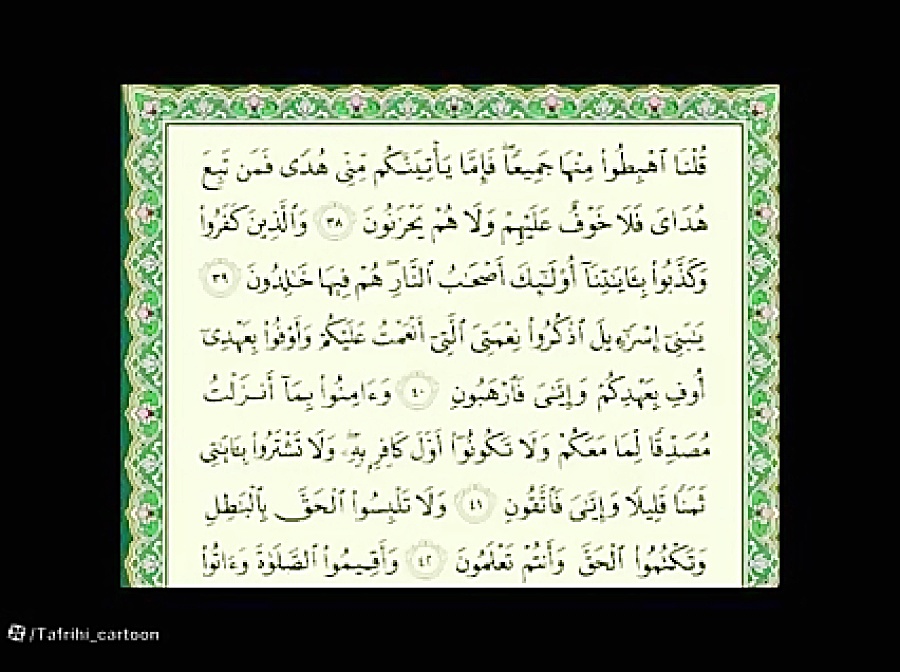 قُلْنَا ٱهْبِطُوا۟ مِنْهَا جَمِيعًا ۖ فَإِمَّا يَأْتِيَنَّكُم مِّنِّى هُدًى فَمَن تَبِعَ
هُدَاىَ فَلَا خَوْفٌ عَلَيْهِمْ وَلَا هُمْ يَحْزَنُونَ ٣٨ وَٱلَّذِينَ كَفَرُوا۟
وَكَذَّبُوا۟ بِـَٔايَـٰتِنَآ أُو۟لَـٰٓئِكَ أَصْحَـٰبُ ٱلنَّارِ ۖ هُمْ فِيهَا خَـٰلِدُونَ ٣٩
يَـٰبَنِىٓ إِسْرَٰٓءِيلَ ٱذْكُرُوا۟ نِعْمَتِىَ ٱلَّتِىٓ أَنْعَمْتُ عَلَيْكُمْ وَأَوْفُوا۟ بِعَهْدِىٓ
أُوفِ بِعَهْدِكُمْ وَإِيَّـٰىَ فَٱرْهَبُونِ ٤٠ وَءَامِنُوا۟ بِمَآ أَنزَلْتُ
مُصَدِّقًا لِّمَا مَعَكُمْ وَلَا تَكُونُوٓا۟ أَوَّلَ كَافِرٍۭ بِهِۦ ۖ وَلَا تَشْتَرُوا۟ بِـَٔايَـٰتِى
ثَمَنًا قَلِيلًا وَإِيَّـٰىَ فَٱتَّقُونِ ٤١ وَلَا تَلْبِسُوا۟ ٱلْحَقَّ بِٱلْبَـٰطِلِ
وَتَكْتُمُوا۟ ٱلْحَقَّ وَأَنتُمْ تَعْلَمُونَ ٤٢ وَأَقِيمُوا۟ ٱلصَّلَوٰةَ وَءَاتُوا۟
/Tafrihi_cartoon